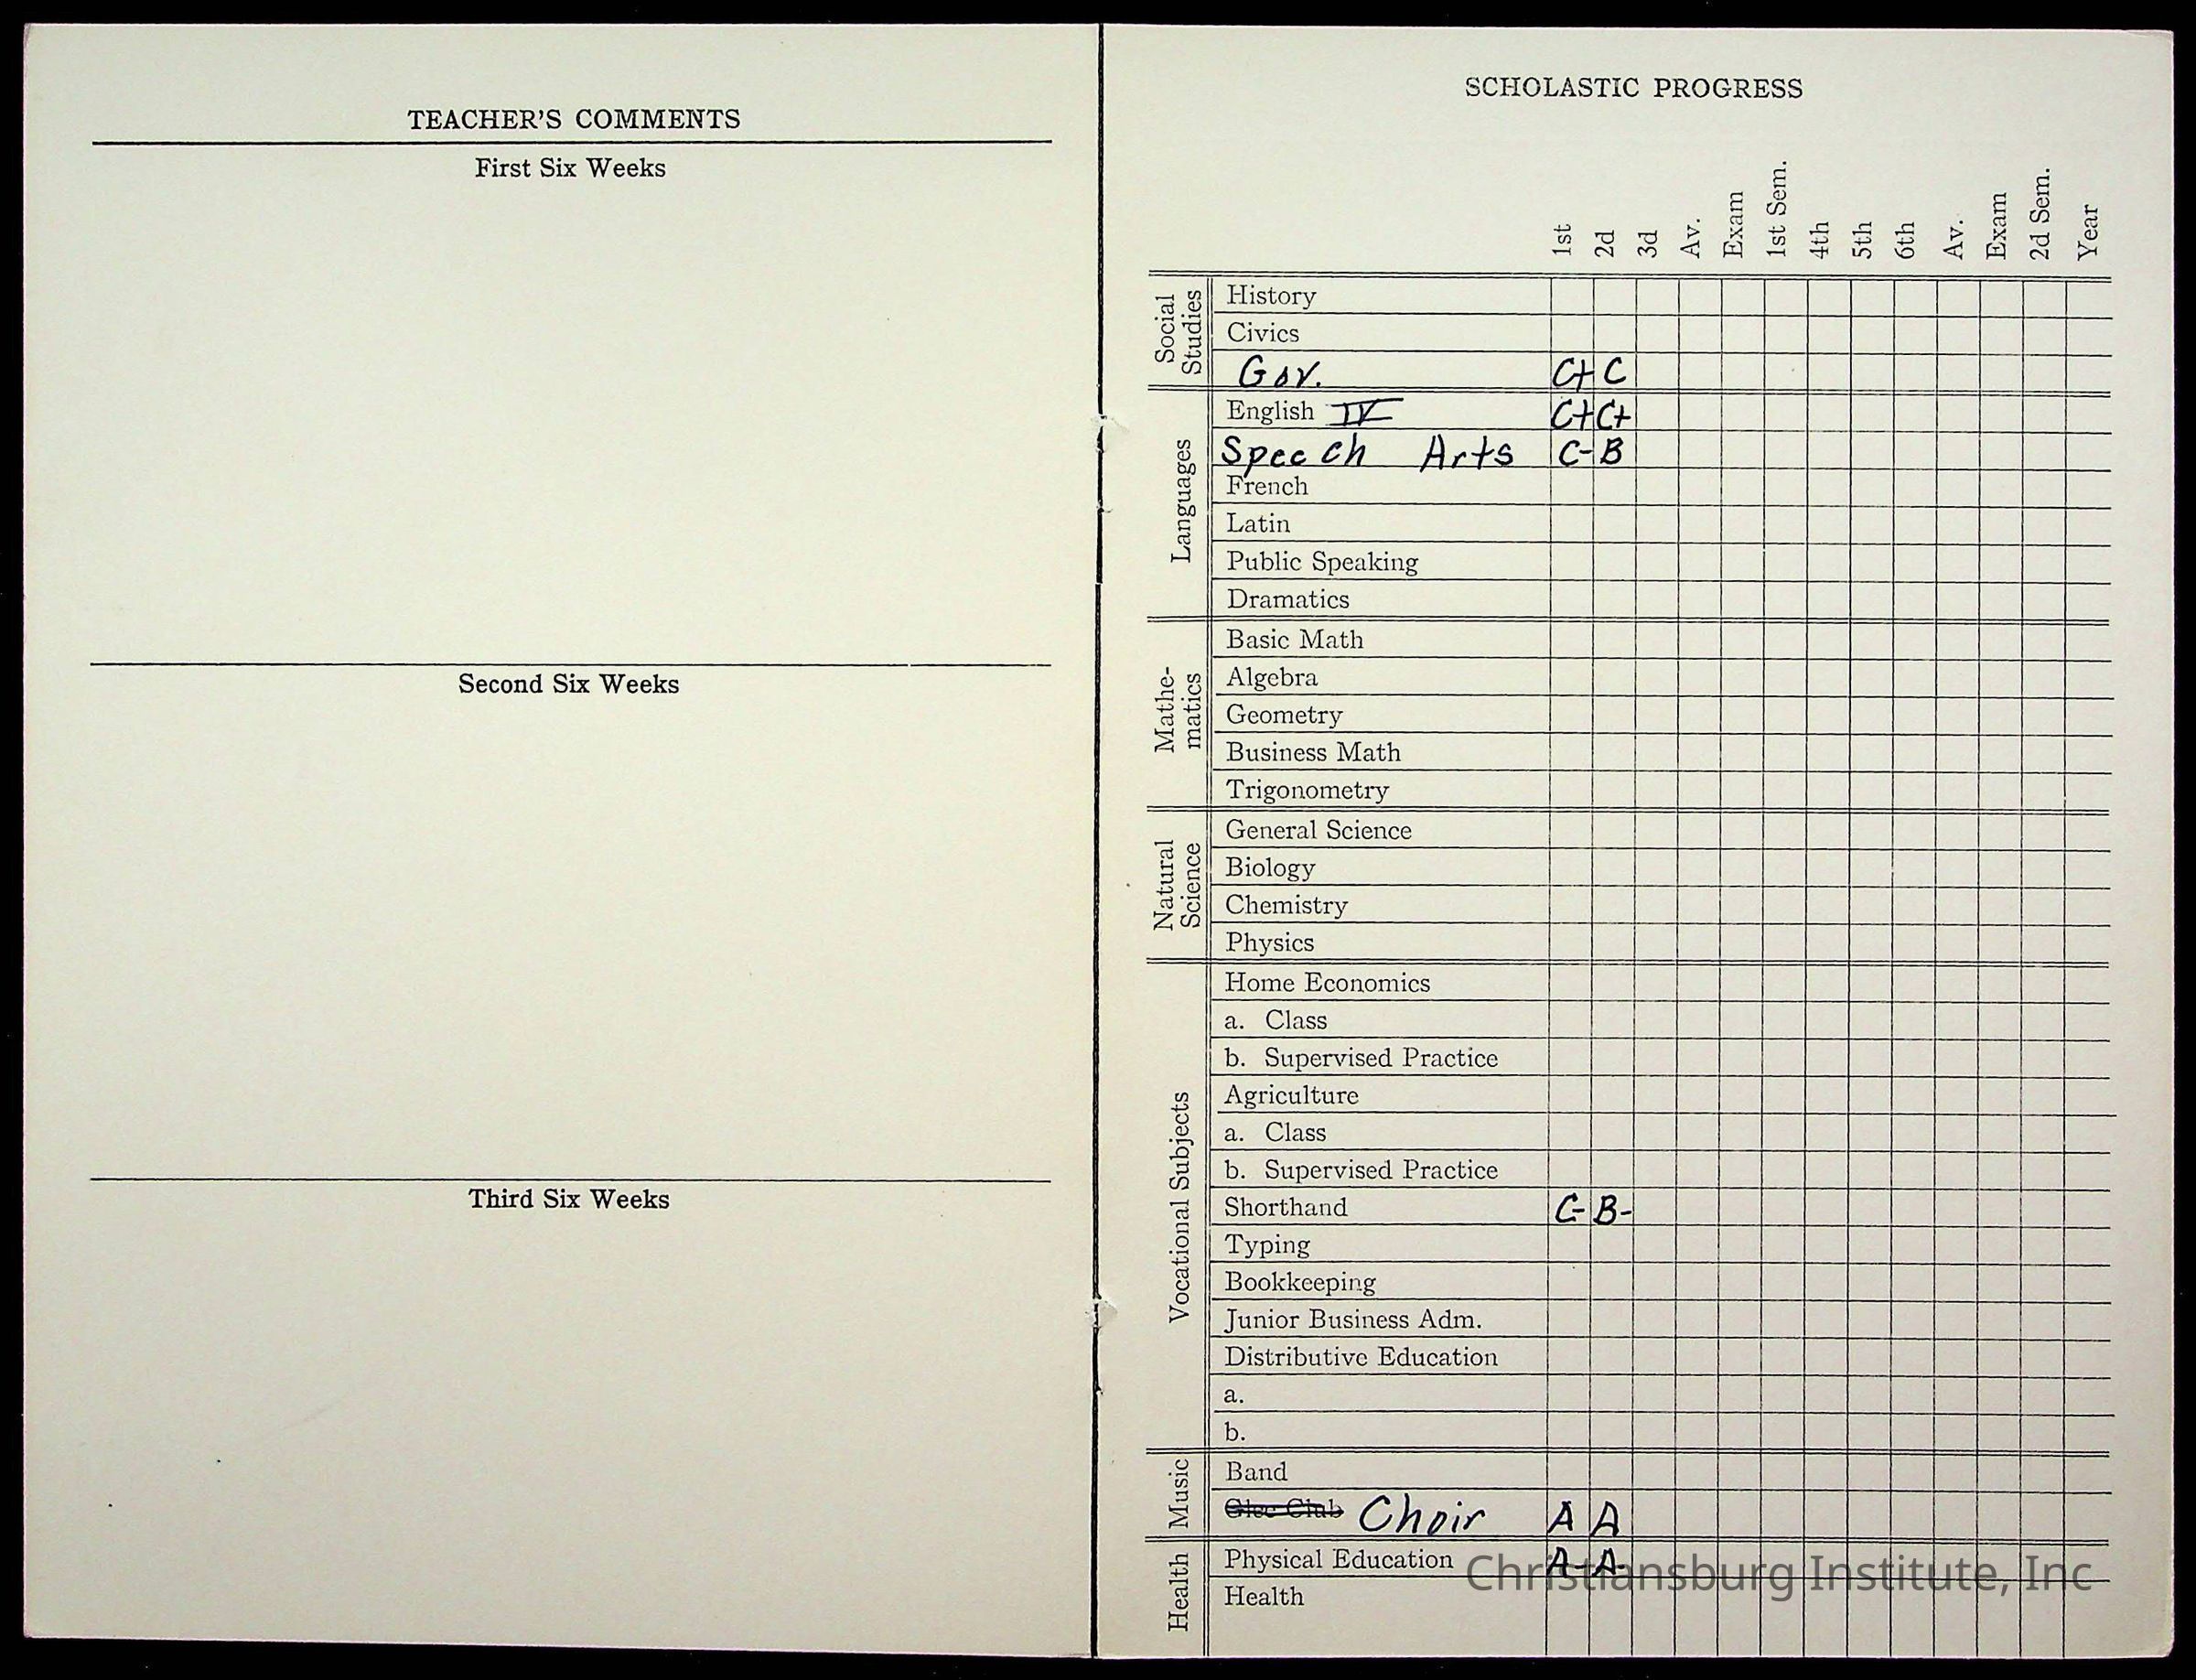 TEACHER'S COMMENTS
First Six Weeks
Second Six Weeks
Third Six Weeks
SCHOLASTIC PROGRESS
1st 2d 3d Av. Exam 1st Sem. 4th 5th 6th Av. Exam 2d Sem. Year
Social Studies
History
Civics
Gov. C+ C
Languages
English IV C+ C+
Speech Arts C- B
French
Latin
Public Speaking
Dramatics
Mathe-
matics
Basic Math
Algebra
Geometry
Business Math
Trigonometry
Natural
Science
General Science
Biology
Chemistry
Physics
Vocational Subjects
Home Economics
a. Class
b. Supervised Practice
Agriculture
a. Class
b. Supervised Practice
Shorthand C- B-
Typing
Bookkeeping
Junior Business Adm.
Distributive Education
a.
b.
Music
Band
Glee Club Choir A A
Health
Physical Education A- A-
Health
Christiansburg Institute, Inc